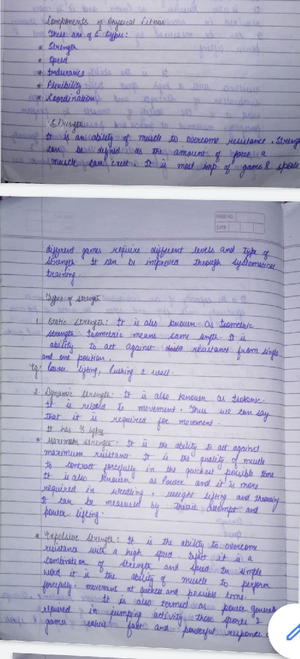 Components of Physical Fitness
There are of 5 types:
* Strength
* Speed
* Endurance
* Flexibility
* Coordination
Strength
It is an ability of muscle to overcome resistance. Strength
can be defined as the amount of force a
muscle can exert. It is most imp of games & sports
PAGE NO.
DATE
different games require different levels and type of
strength. It can be improved through systematical
training
Types of strength
1. Static Strength: It is also known as Isometric
strength. Isometric means same length. It is
ability to act against resistance from single
and one position.
Eg: lifting, pushing a wall.
2. Dynamic Strength: It is also known as Isotonic
It is related to movement. Thus we can say
that it is required for movement.
It has 3 types
* Maximum Strength: It is the ability to act against
maximum resistance. It is the quality of muscle
to contract forcefully in the quickest possible time
It is also known as Power and it is more
required in weight lifting and throwing
It can be measured by and
power lifting.
* Explosive Strength: It is the ability to overcome
resistance with a high speed. it is a
combination of strength and speed. In simple
word it is the ability of muscle to perform
forcefully movement at quickest and possible time.
It is also termed as power generally
required in jumping activity those sports &
games fast and powerful response